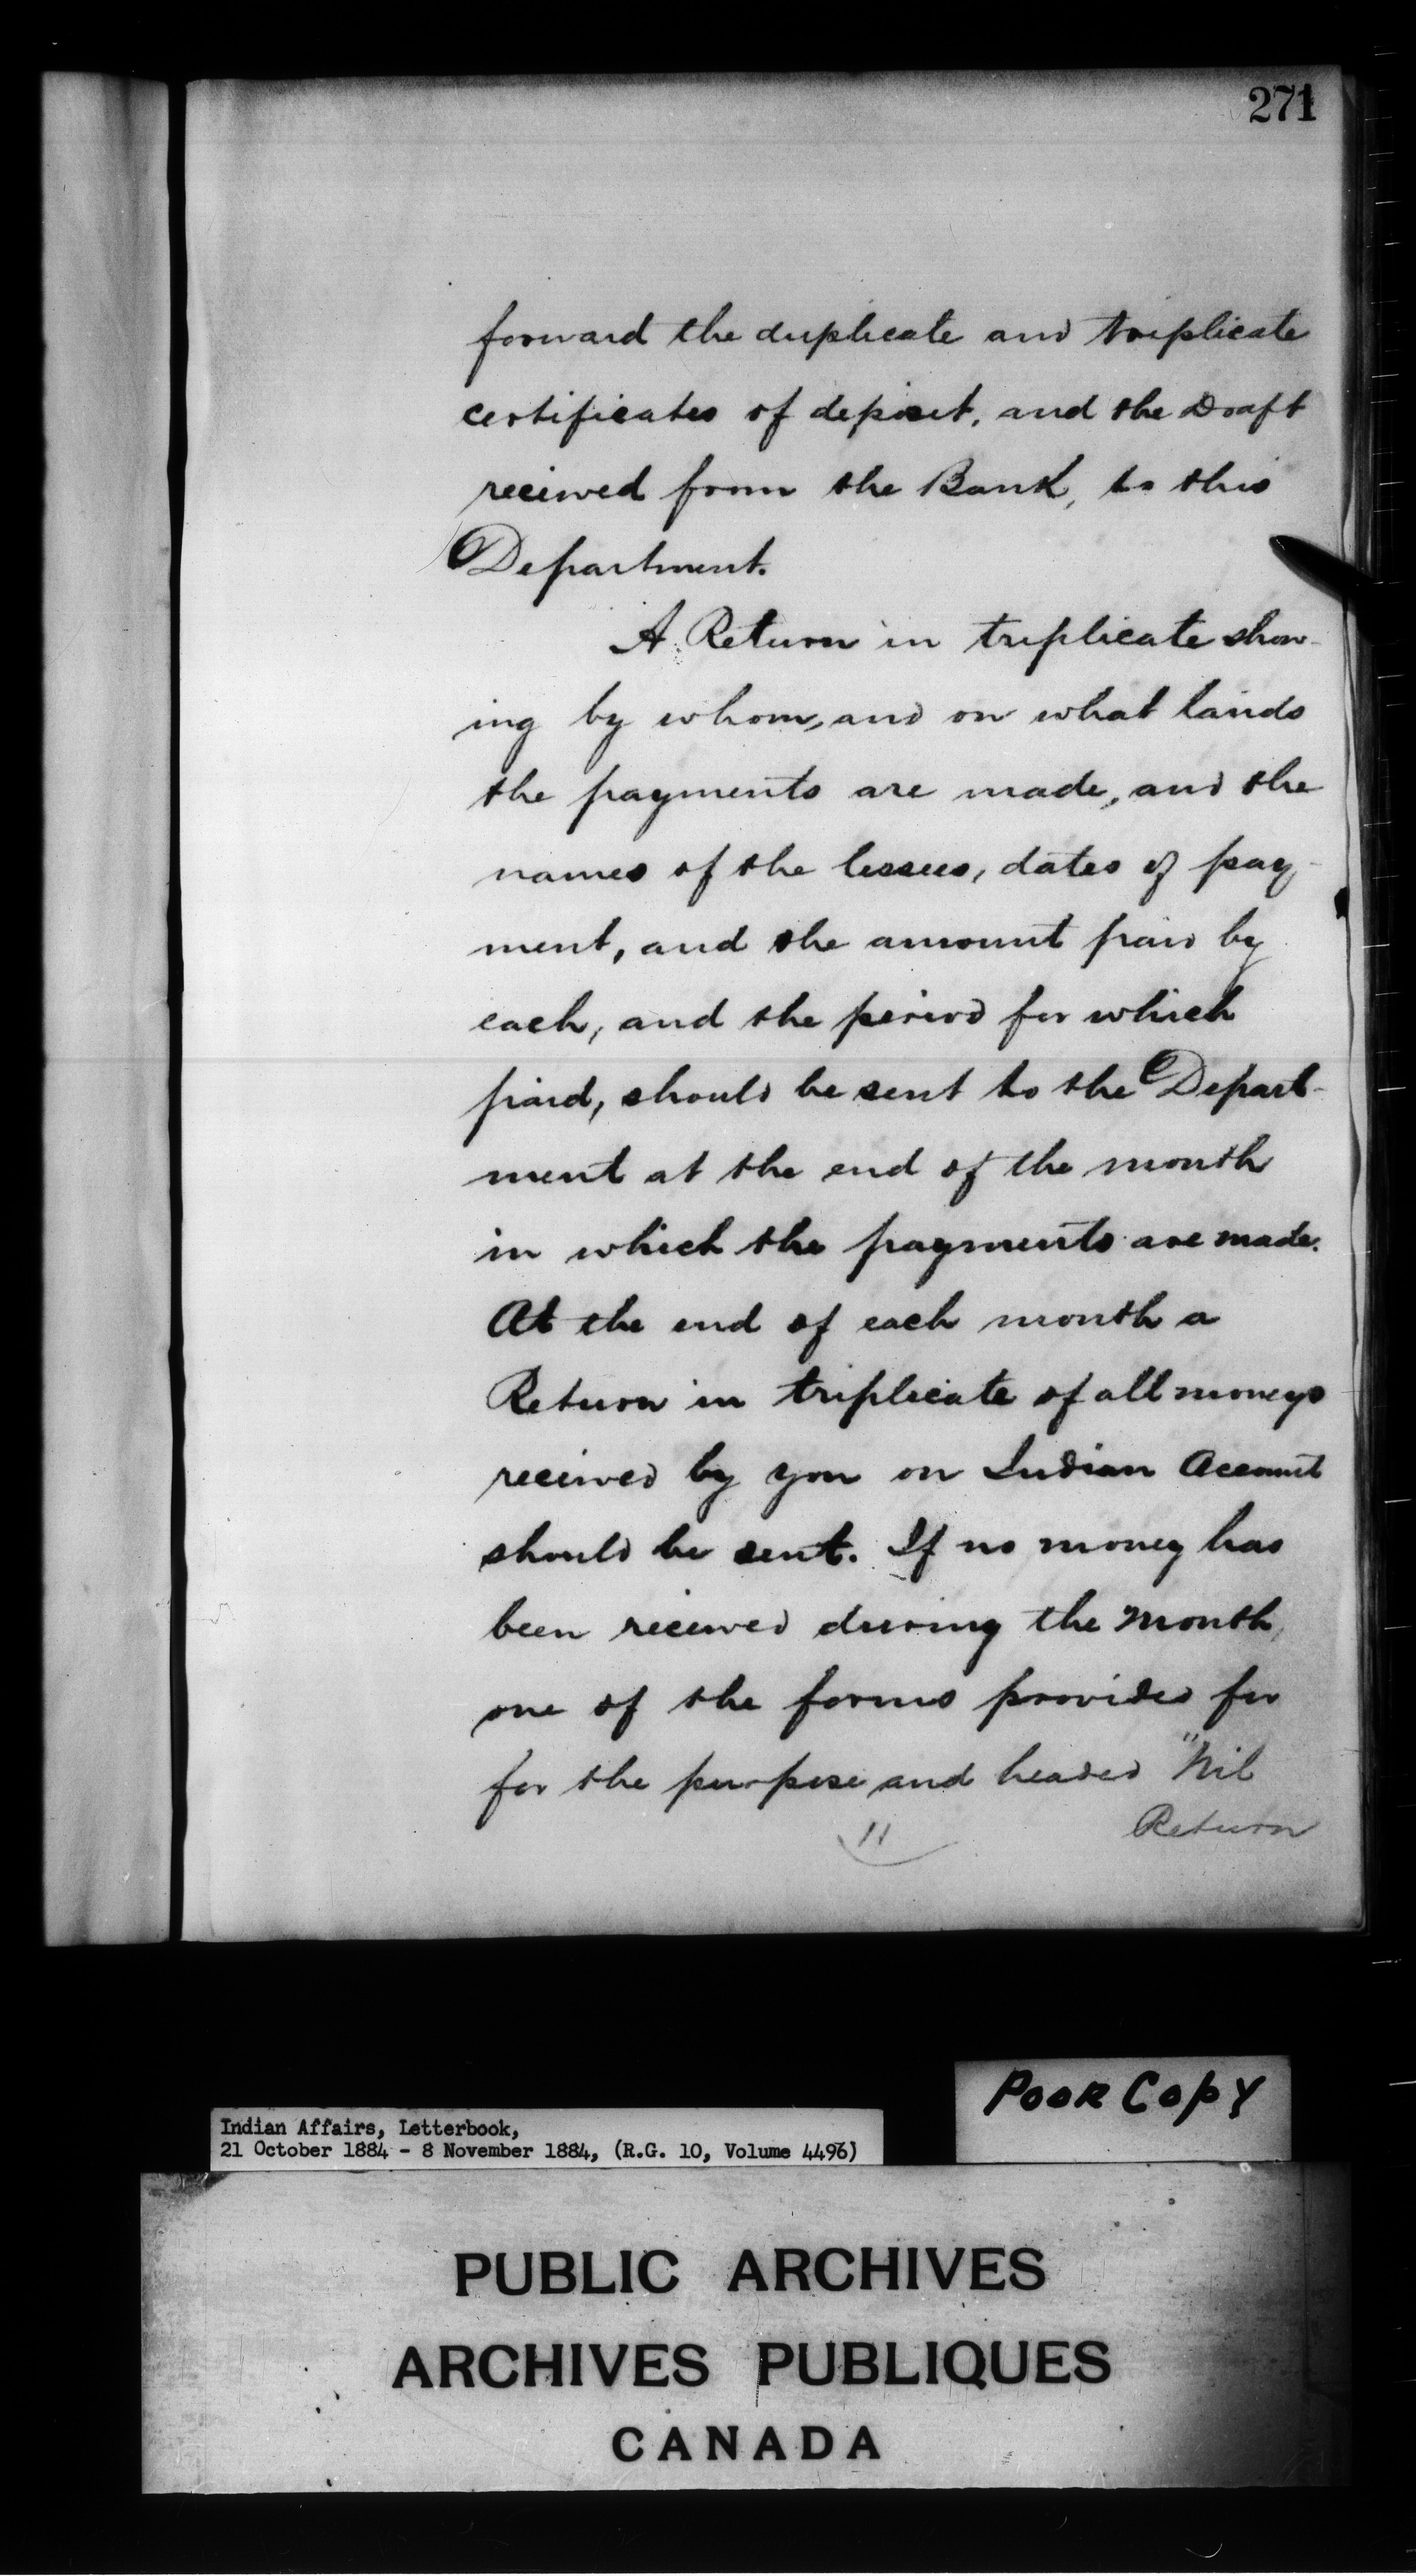 271
forward the duplicate and triplicate
certificates of deposit, and the Draft
received from the Bank, to this
Department.
A Return in triplicate show-
ing by whom, and on what lands
the payments are made, and the
names of the lessees, dates of pay-
ment, and the amount paid by
each, and the period for which
paid, should be sent to the Depart-
ment at the end of the month
in which the payments are made.
At the end of each month a
Return in triplicate of all moneys
received by you on Indian Account
should be sent. If no money has
been received during the month,
one of the forms provided for
for the purpose and headed "Nil
11
Return
POOR COPY
Indian Affairs, Letterbook,
21 October 1884 - 8 November 1884, (R.G. 10, Volume 4496)
PUBLIC ARCHIVES
ARCHIVES PUBLIQUES
CANADA